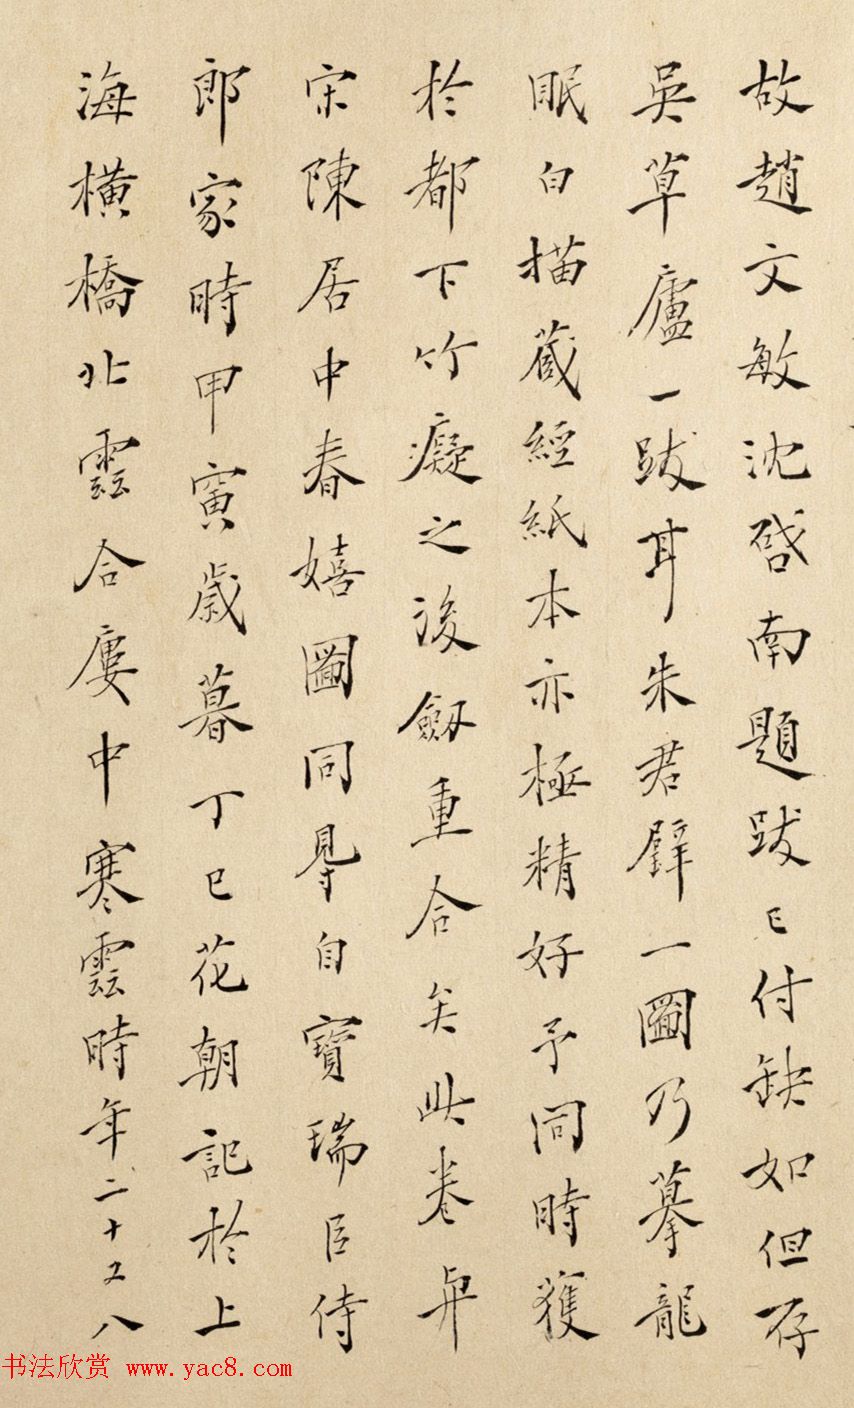 故趙文敏沈啓南題跋已付缺如但存
吳草廬一跋耳朱君擘一圖乃摹龍
眠白描藏經紙本亦極精好予同時獲
於都下竹癡之後劔重合矣此卷與
宋陳居中春嬉圖同得自寶瑞臣侍
郎家時甲寅歲暮丁巳花朝記於上
海橫橋北雲合廔中寒雲時年二十又八
书法欣赏 www.yac8.com